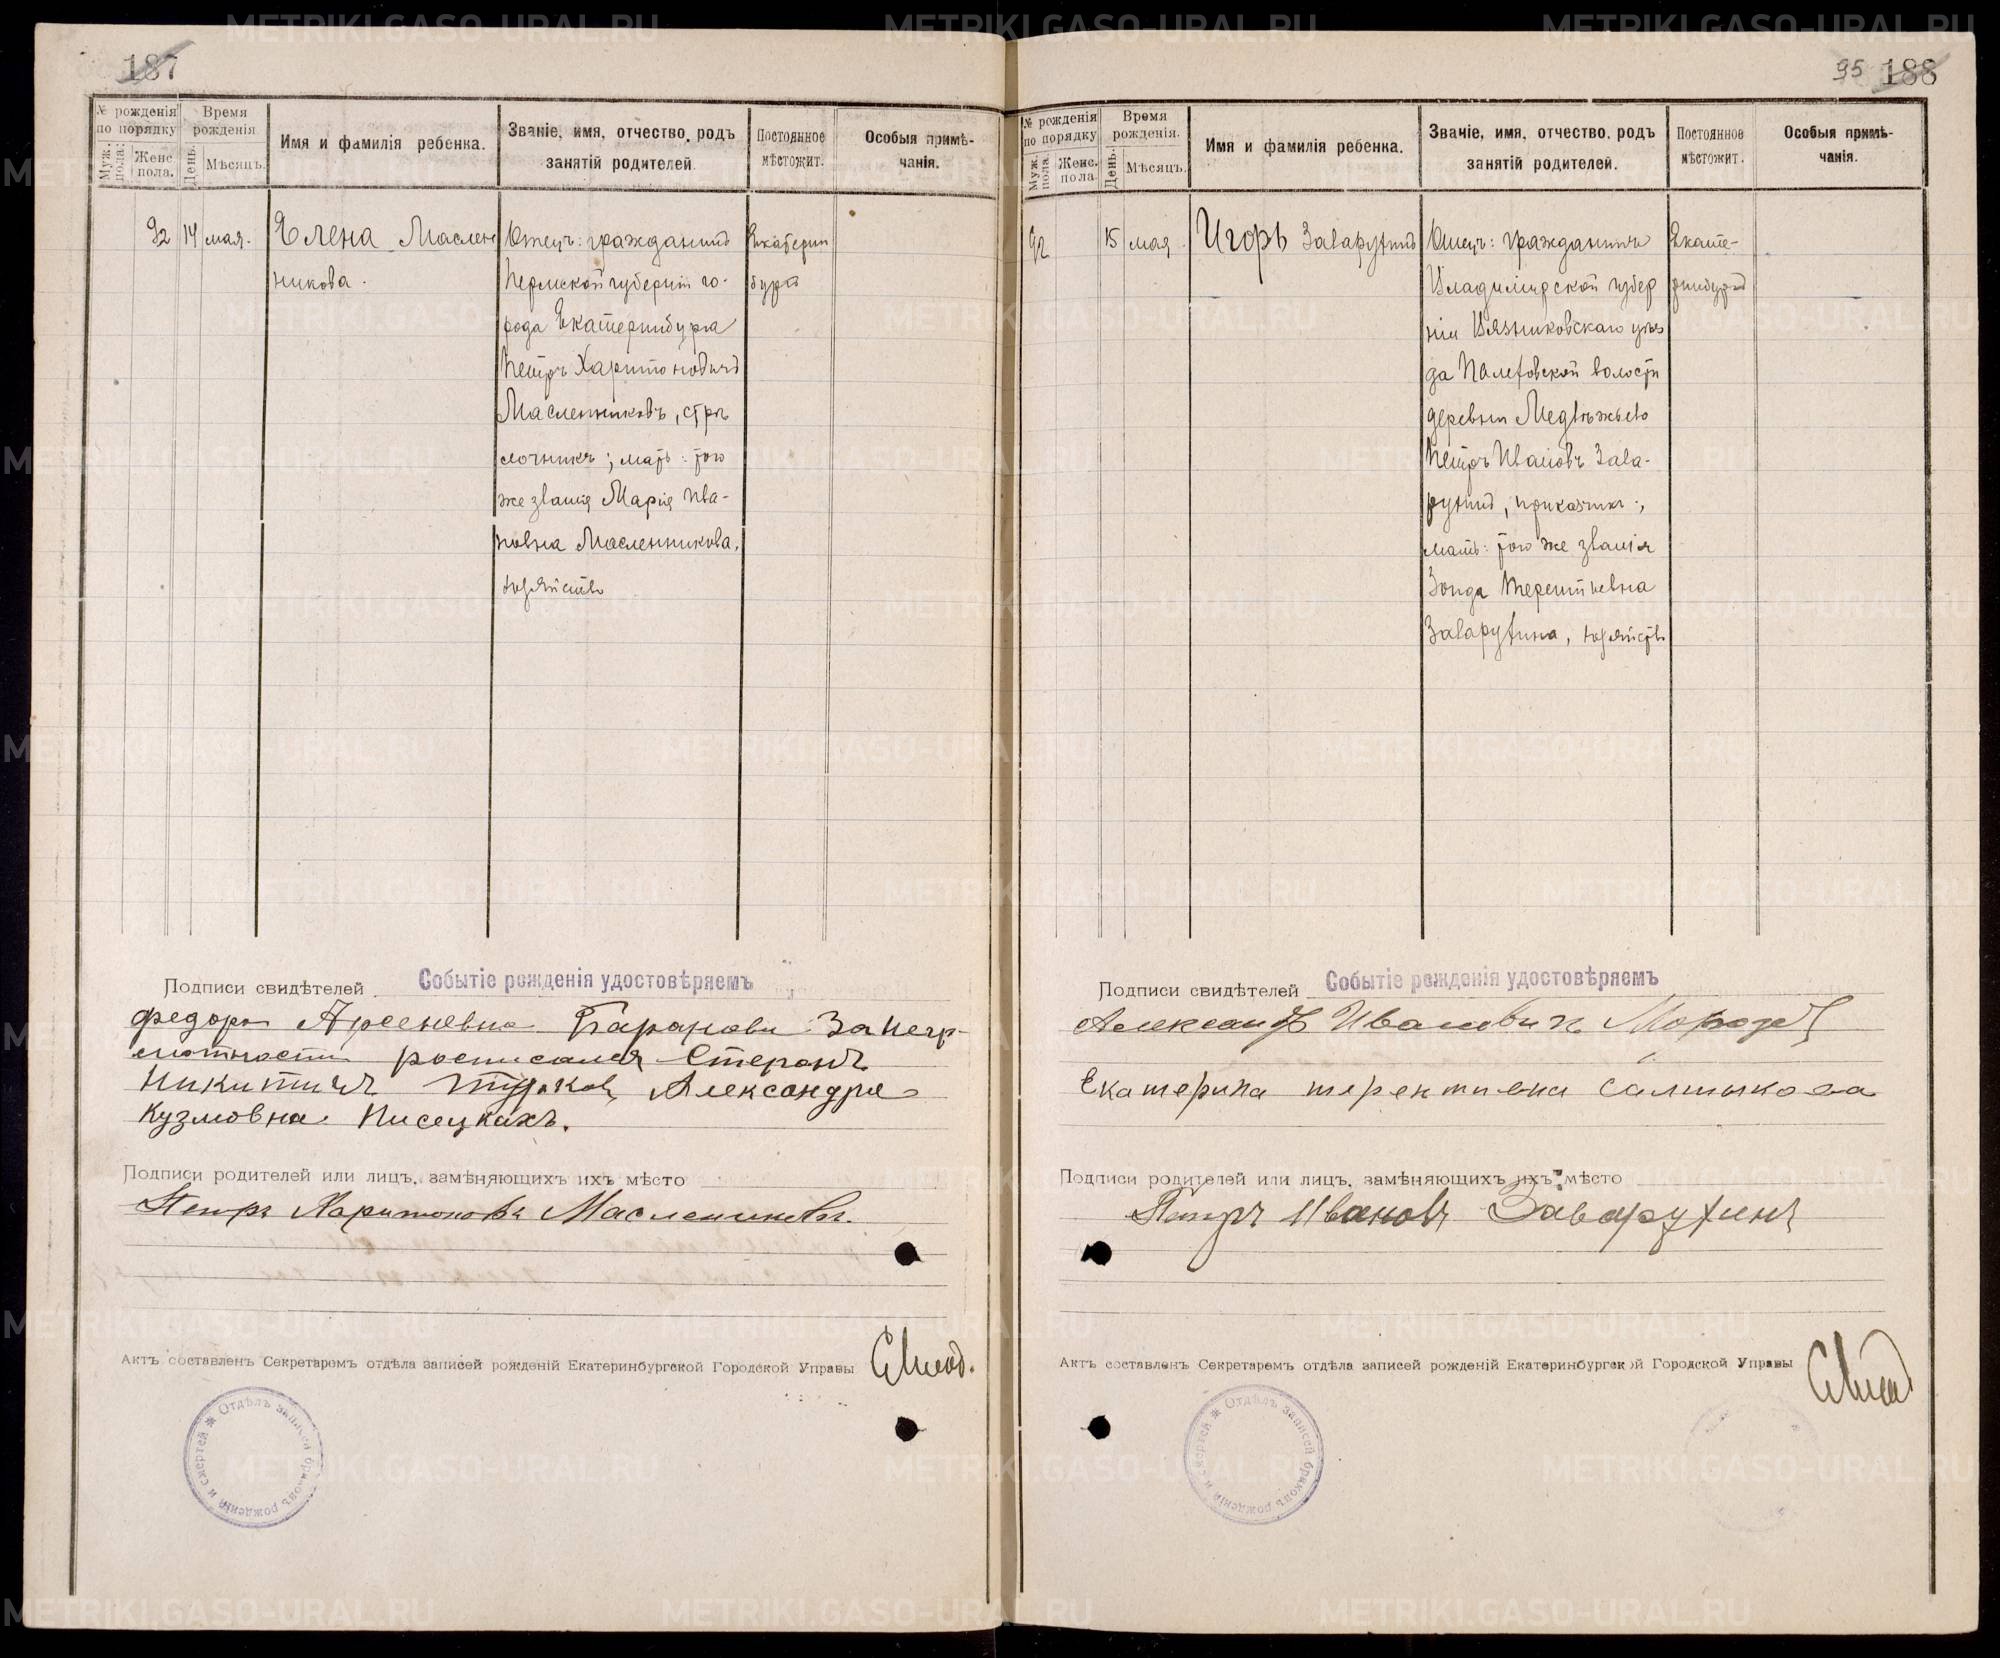 187
№ рожденія по порядку
Муж. пола.
Женс. пола.
Время рожденія
День.
Мѣсяцъ.
Имя и фамилія ребенка.
Званіе, имя, отчество, родъ занятій родителей.
Постоянное мѣстожит.
Особыя примѣчанія.
92 14 мая.
Елена Маслен
никова.
Отецъ: гражданинъ
Пермской губерніи го-
рода Екатеринбурга
Петръ Харитоновичъ
Масленниковъ, стрѣ
лочникъ; мать: того
же званія Марія Ива-
новна Масленникова,
хозяйство
Екатерин
бургъ
Подписи свидѣтелей
Событіе рожденія удостовѣряемъ
Федора Арсеневна Баранова За негр-
мотности росписался Степанъ
Никитичъ Александра
Кузмовна Писецкахъ.
Подписи родителей или лицъ, замѣняющихъ ихъ мѣсто
Петръ Харитоновъ Масленниковъ.
Актъ составленъ Секретаремъ отдѣла записей рожденій Екатеринбургской Городской Управы
Отдѣлъ записей браковъ рожденій и смертей
95 188
№ рожденія по порядку
Муж. пола.
Женс. пола.
Время рожденія.
День.
Мѣсяцъ.
Имя и фамилія ребенка.
Званіе, имя, отчество, родъ занятій родителей.
Постоянное мѣстожит.
Особыя примѣчанія.
92 15 мая
Игорь Заварухинъ
Отецъ: гражданинъ
Владимірской губер
ніи Вязниковскаго уѣз
да Палеховской волости
деревни Медвѣжьево
Петръ Ивановъ Зава-
рухинъ, приказчикъ;
мать: того же званія
Зоида Терентьевна
Заварухина, хозяйств
Екате-
ринбургъ
Подписи свидѣтелей
Событіе рожденія удостовѣряемъ
Александр Ивановичъ
Екатерина терентивна Салтыкова
Подписи родителей или лицъ, замѣняющихъ ихъ мѣсто
Петръ Ивановъ Заварухинъ
Актъ составленъ Секретаремъ отдѣла записей рожденій Екатеринбургской Городской Управы
Отдѣлъ записей браковъ рожденій и смертей
METRIKI.GASO-URAL.RU